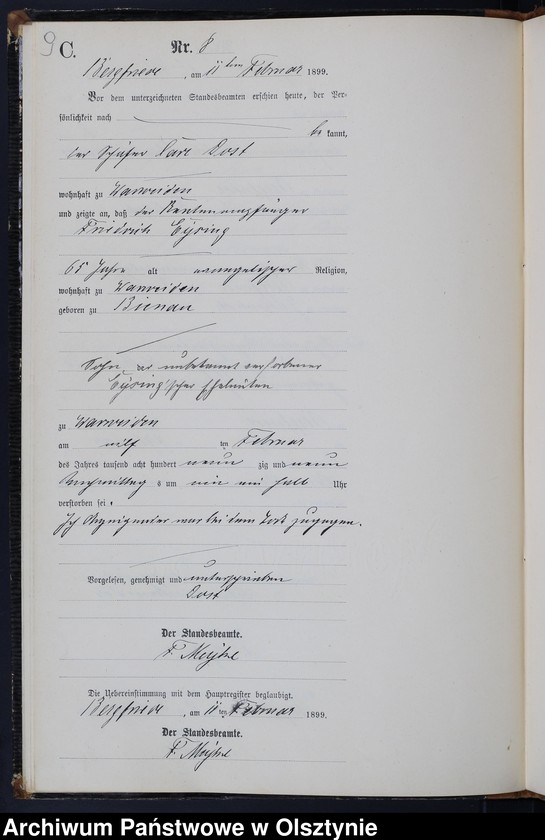 9 C.
Nr. 8
Bergfriede, am 11ten Februar 1899.
Vor dem unterzeichneten Standesbeamten erschien heute, der Per-
sönlichkeit nach
be kannt,
der Schäfer Carl Dost
wohnhaft zu Warweiden
und zeigte an, daß der Rentenempfänger
Friedrich Eysing
65 Jahre alt evangelischer Religion,
wohnhaft zu Warweiden
geboren zu Bienau
Sohn der unbekannt verstorbenen
Eysing'schen Eheleuten
zu Warweiden
am elf ten Februar
des Jahres tausend acht hundert neun zig und neun
Vormittags um ein ein halb Uhr
verstorben sei.
Ich Anzeigender war bei dem Tode zugegen.
Vorgelesen, genehmigt und unterschrieben
Dost
Der Standesbeamte.
Die Uebereinstimmung mit dem Hauptregister beglaubigt.
Bergfriede, am 11 ten Februar 1899.
Der Standesbeamte.
Archiwum Państwowe w Olsztynie